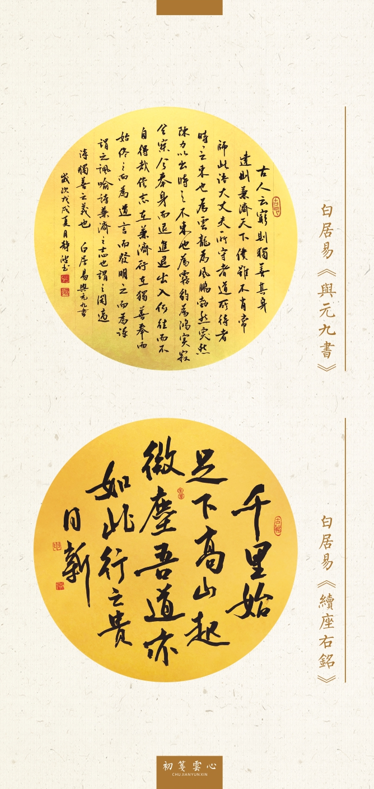 古人云窮則獨善其身
達則兼濟天下僕雖不肖常
師此語大丈夫所守者道所待者
時時之來也為雲龍為風鵬勃然突然
陳力以出時之不來也為霧豹為鴻冥寂
兮寥兮奉身而退進退出入何往而不
自得哉僕志在兼濟行在獨善奉而
始終之則為道言而發明之則為詩
謂之諷喻詩兼濟之志也謂之閒適
詩獨善之義也 白居易與元九書
歲次戊戌夏月
白居易《與元九書》
千里始
足下高山起
微塵吾道亦
如此行之貴
日新
白居易《續座右銘》
初箋雲心
CHUJIANYUNXIN